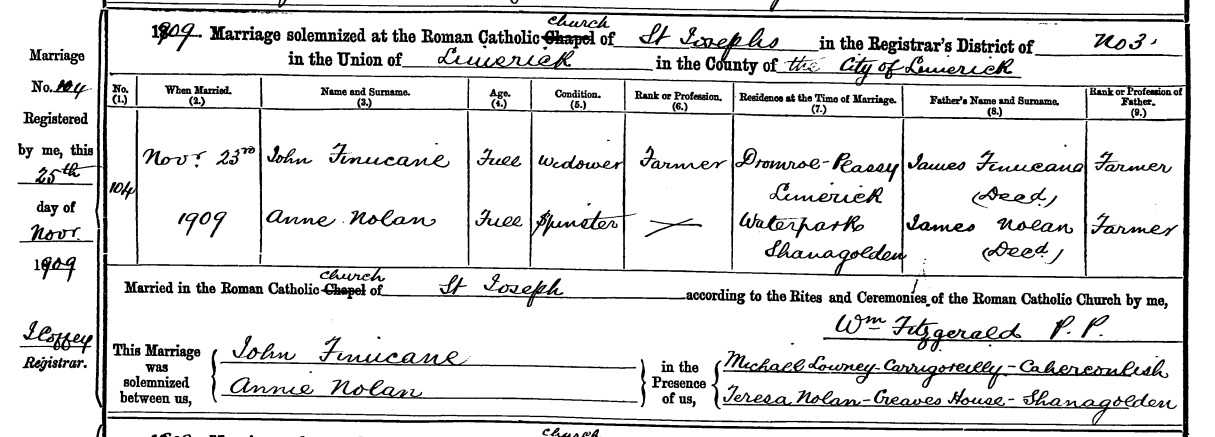 1909. Marriage solemnized at the Roman Catholic church Chapel of St Josephs in the Registrar's District of No 3.
in the Union of Limerick in the County of the City of Limerick
Marriage
No. 104
Registered
by me, this
25th
day of
Novr.
1909
J Coffey
Registrar.
No. (1.) When Married. (2.) Name and Surname. (3.) Age. (4.) Condition. (5.) Rank or Profession. (6.) Residence at the Time of Marriage. (7.) Father's Name and Surname. (8.) Rank or Profession of Father. (9.)
104 Novr. 23rd John Finucane Full Widower Farmer Dromroe-Plassy James Finucane Farmer
Limerick (Deed)
1909 Anne Nolan Full Spinster Waterpark James Nolan Farmer
Shanagolden (Deed)
Married in the Roman Catholic church Chapel of St Joseph according to the Rites and Ceremonies of the Roman Catholic Church by me,
Wm Fitzgerald P.P.
This Marriage was solemnized between us,
John Finucane
Annie Nolan
in the Presence of us,
Michael Lowney-Carrigoreilly-Caherconlish
Teresa Nolan-Creaves House-Shanagolden
church